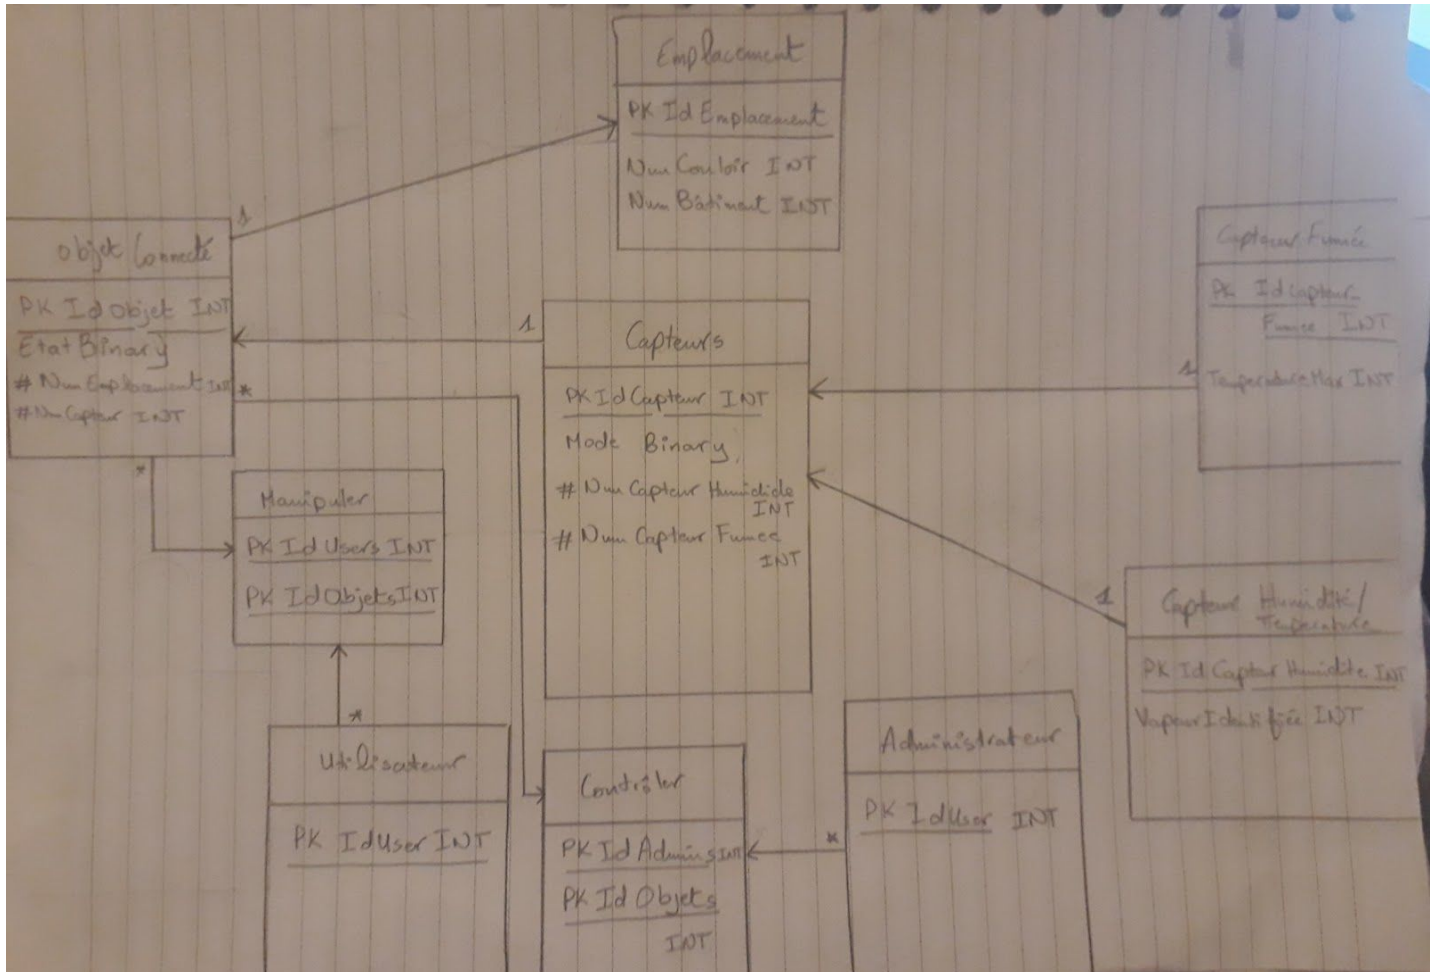 Emplacement
PK Id Emplacement
Num Couloir INT
Num Bâtiment INT
1
Objet Connecté
PK Id Objet INT
Etat Binary
# Num Emplacement INT
*
# Num Capteur INT
*
1
Capteurs
PK Id Capteur INT
Mode Binary
# Num Capteur Humidide
INT
# Num Capteur Fumee
INT
Capteur Fumée
PK Id Capteur
Fumee INT
1
Temperature Max INT
1
Capteur Humidité/
Temperature
PK Id Capteur Humidite INT
Vapeur Identifiée INT
Manipuler
PK Id Users INT
PK Id Objets INT
*
Utilisateur
PK Id User INT
Contrôler
PK Id Admins INT
PK Id Objets
INT
*
Administrateur
PK Id User INT